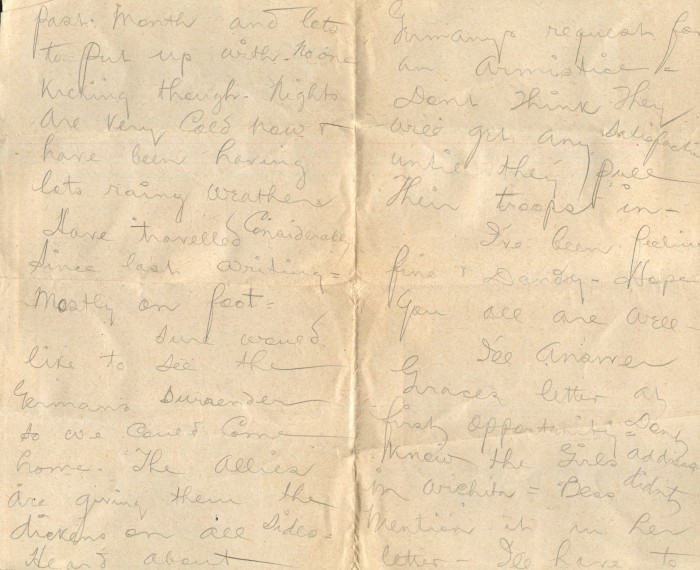 past Month and lots
to put up with. No one
Kicking though. Nights
are very Cold now &
have been having
lots rainy weather
Have travelled Considerably
Since last writing =
Mostly on foot =
Sure would
like to see the
Germans Surrender
so we could come
home. The Allies
are giving them the
dickens on all sides =
Heard about
Germanys request for
an armistice =
Dont Think They
will get any Satisfact
until they pull
Their troops in =
I've been feeling
fine & Dandy - Hope
You all are well
I'll Answer
Graces letter at
first opportunity = Dont
Know the Girls address
in Wichita = Bess didnt
Mention it in her
letter - I'll have to